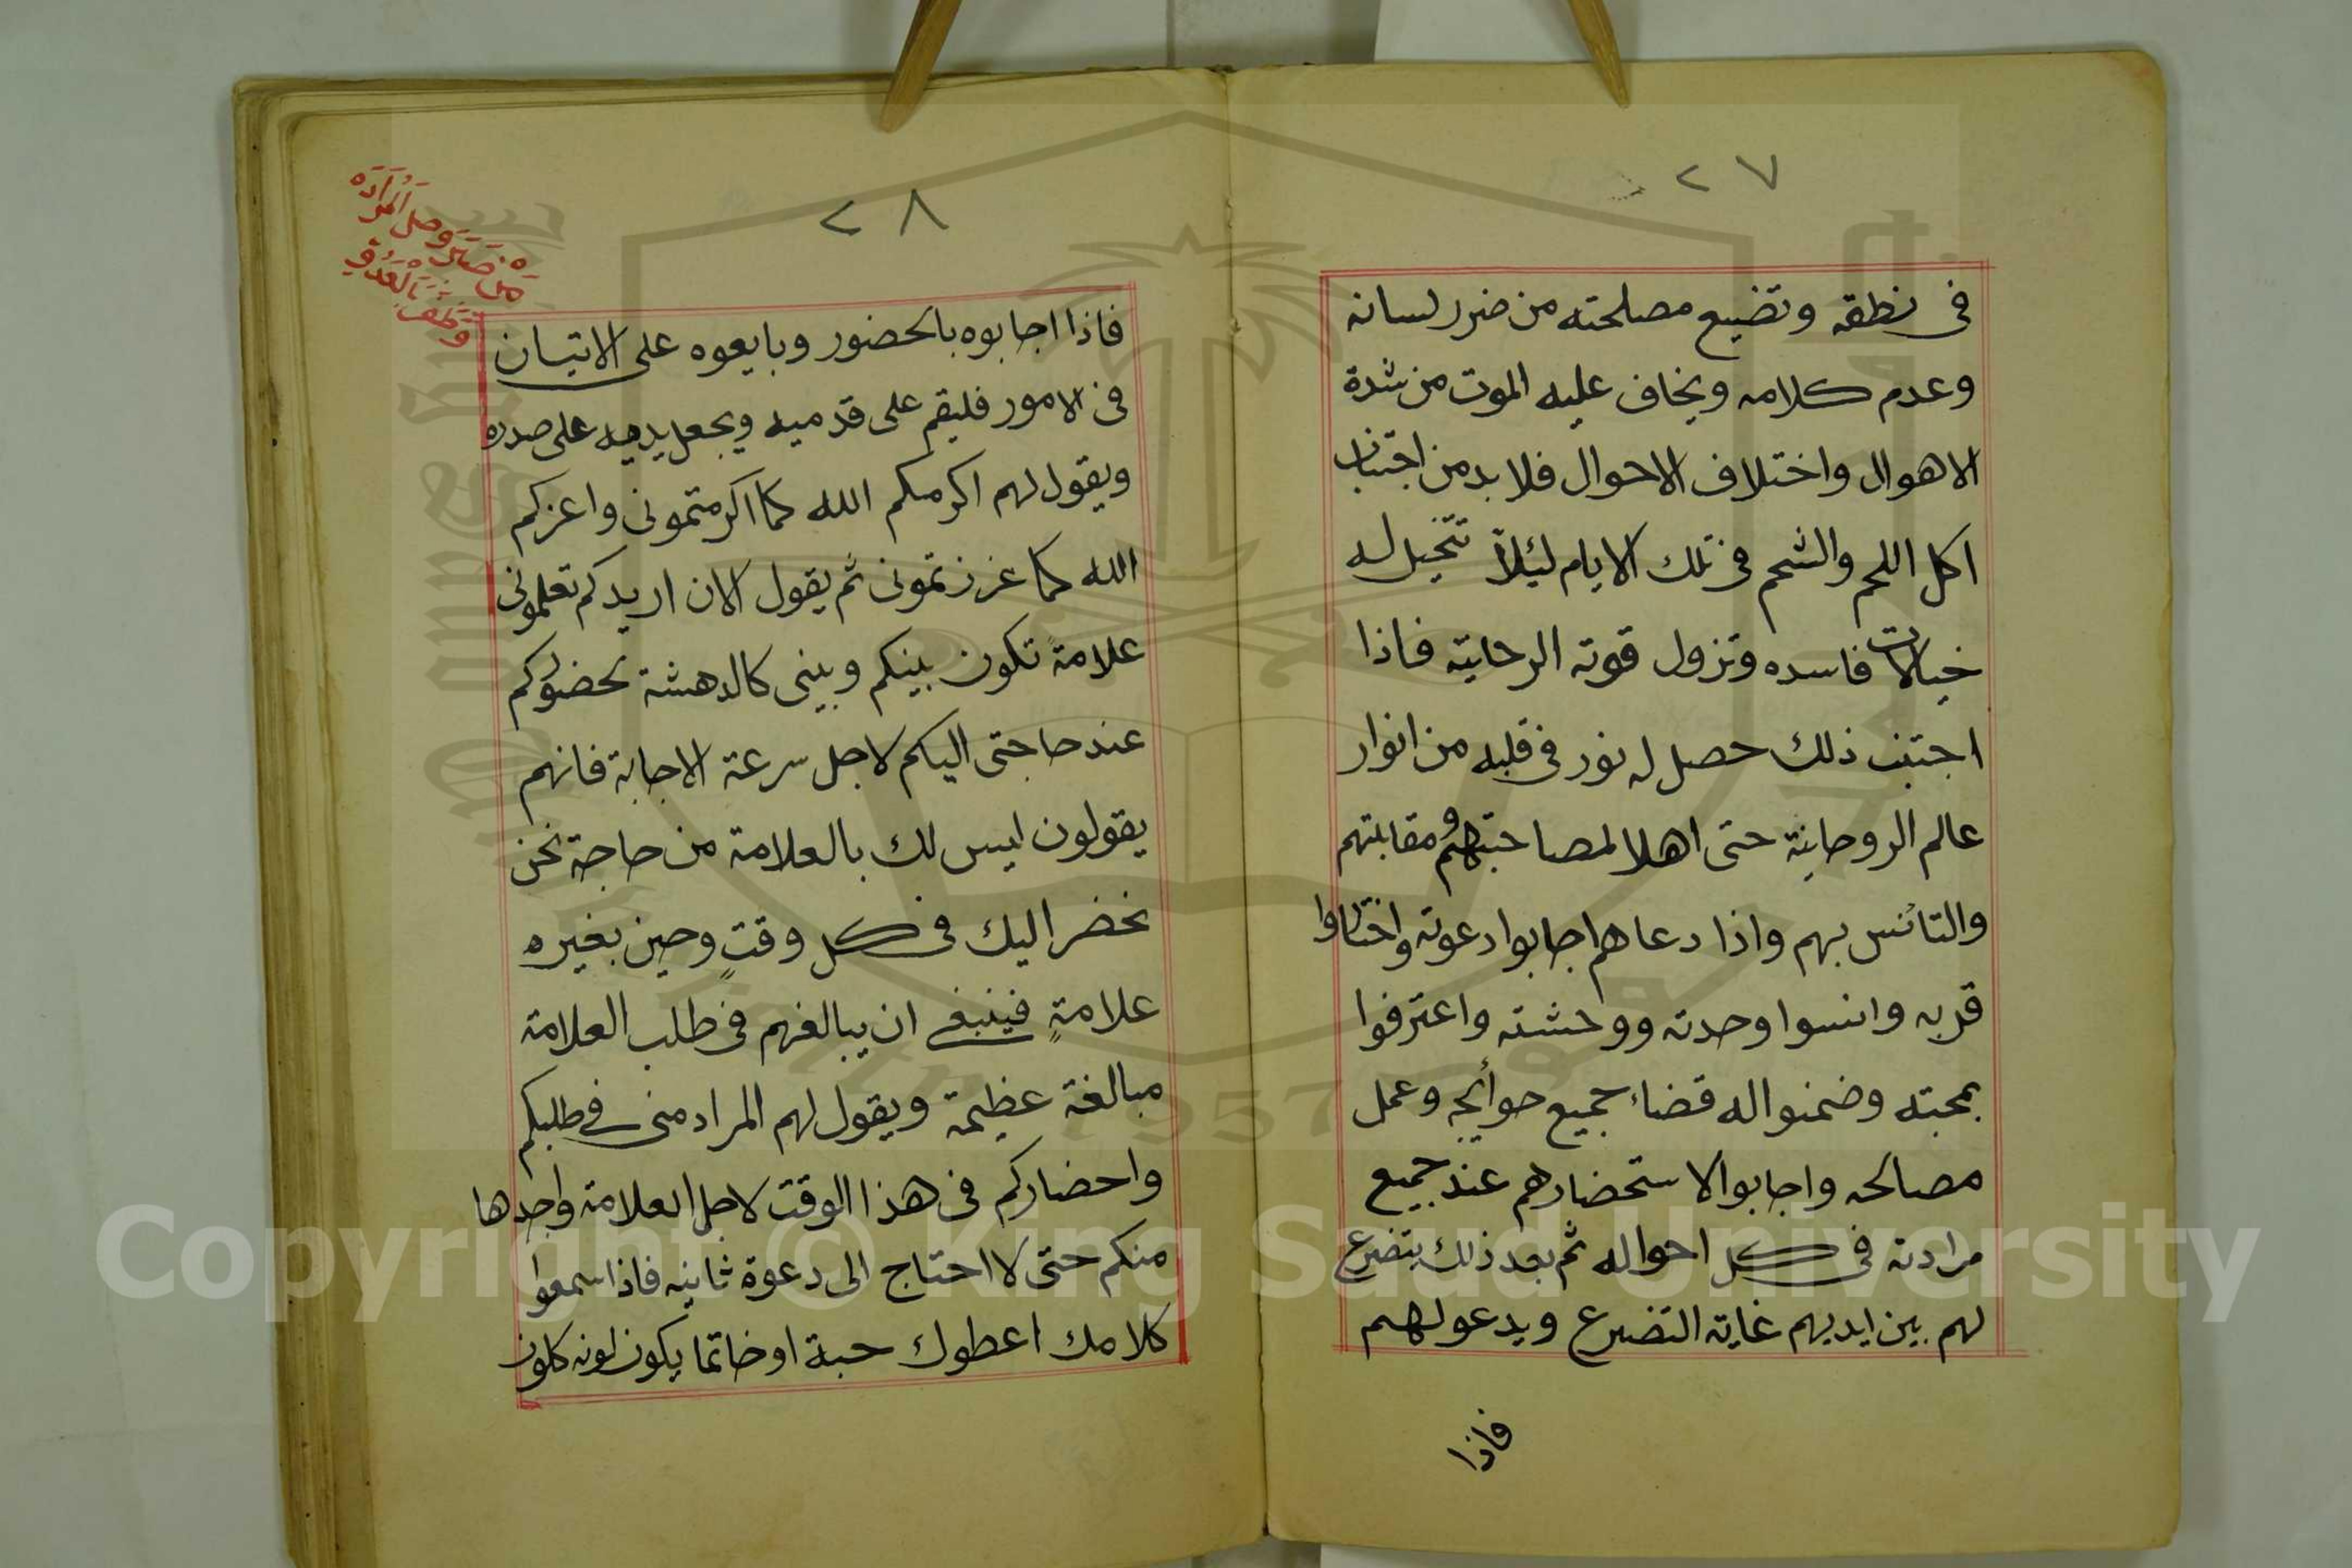 ٢٧
في نطقه وتضيع مصلحته من ضرر لسانه
وعدم كلامه ويخاف عليه الموت من شدة
الاهوال واختلاف الاحوال فلا بد من اجتناب
اكل اللحم والشحم في تلك الايام ليئلاً تتخيل له
خيالات فاسده وتزول قوته الرحانيه فاذا
اجتنب ذلك حصل له نور في قلبه من انوار
عالم الروحانية حتى اهلا لمصاحبتهم ومقابلتهم
والتانس بهم واذا دعاهم اجابوا دعوته واختاروا
قربه وانسوا وحدته ووحشته واعترفوا
بمحبته وضمنوا له قضاء جميع حوائجه وعمل
مصالحه واجابوا لاستحضارهم عند جميع
مرادته في كل احواله ثم بعد ذلك يتضرع
لهم بين ايديهم غاية التضرع ويدعو لهم
فاذا
٢٨
من صابر وصل المراده
وظفر بالعدو
فاذا اجابوه بالحضور وبايعوه على الاتيان
في الامور فليقم على قدميه ويجعل يديه على صدره
ويقول لهم اكرمكم الله كما اكرمتموني واعزكم
الله كما عززتموني ثم يقول الان اريدكم تعلموني
علامة تكون بينكم وبيني كالدهشة لحضوركم
عند حاجتي اليكم لاجل سرعة الاجابة فانهم
يقولون ليس لك بالعلامة من حاجة نحن
نحضر اليك في كل وقتٍ وحين بغيره
علامةٍ فينبغي ان يبالغهم في طلب العلامة
مبالغة عظيمة ويقول لهم المراد مني في طلبكم
واحضاركم في هذا الوقت لاجل العلامة واجدها
منكم حتى لا احتاج الى دعوة ثانيه فاذا سمعوا
كلامك اعطوك حبة او خاتما يكون لونه كلون
Copyright © King Saud University
1957